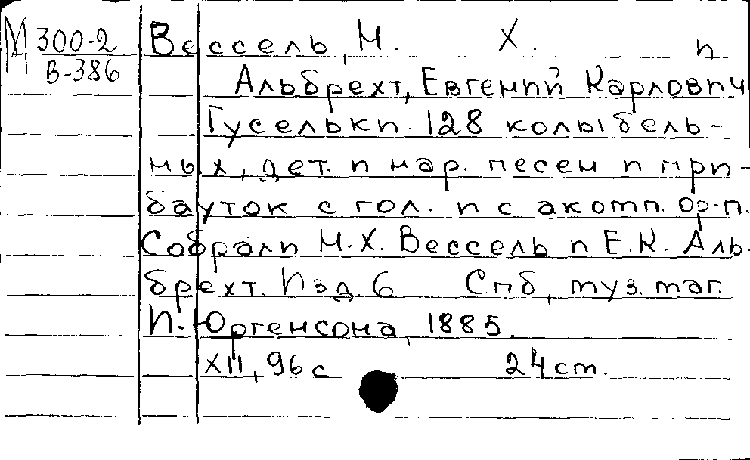 М 300-2 Вессель, Н. Х. и
В-386 Альбрехт, Евгений Карлович
Гусельки. 128 колыбель-
ных, дет. и нар. песен и при-
бауток с гол. и с акомп. ф-п.
Собрали Н.Х. Вессель и Е.К. Аль-
брехт. Изд. 6 Спб, муз. маг.
И. Юргенсона, 1885.
XII, 96 с 24 cm.